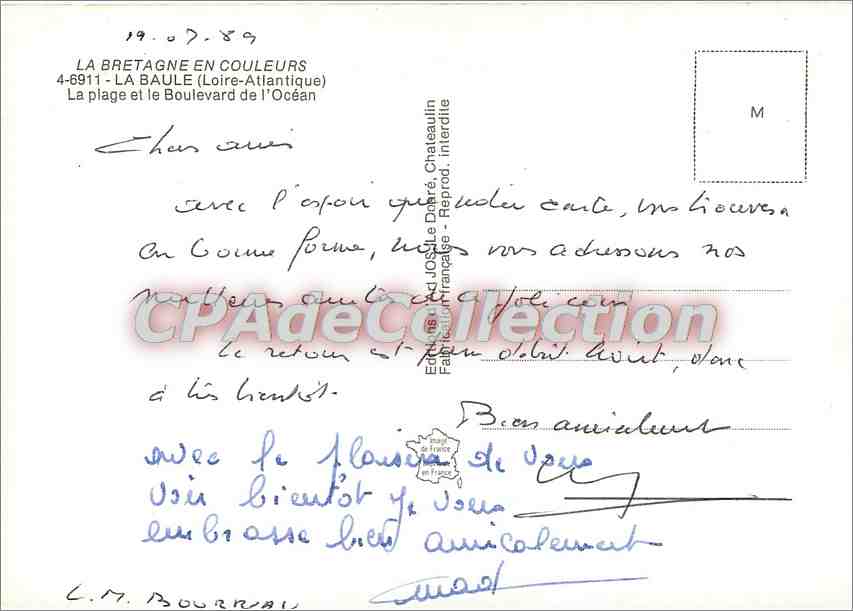 19.07.89
LA BRETAGNE EN COULEURS
4-6911 - LA BAULE (Loire-Atlantique)
La plage et le Boulevard de l'Océan
M
Editions d'Art JOS Le Doaré, Chateaulin
Fabrication française - Reprod. interdite
Chers amis
avec l'espoir que cette carte, vous trouvera
en bonne forme, nous vous adressons nos
meilleures amitiés de ce joli coin
CPAdeCollection
Le retour est pour début Août, donc
à très bientôt.
Bien amicalement
Image
de France
en France
avec le plaisir de vous
voir bientôt je vous
embrasse bien amicalement
C.M. BOURRIAU